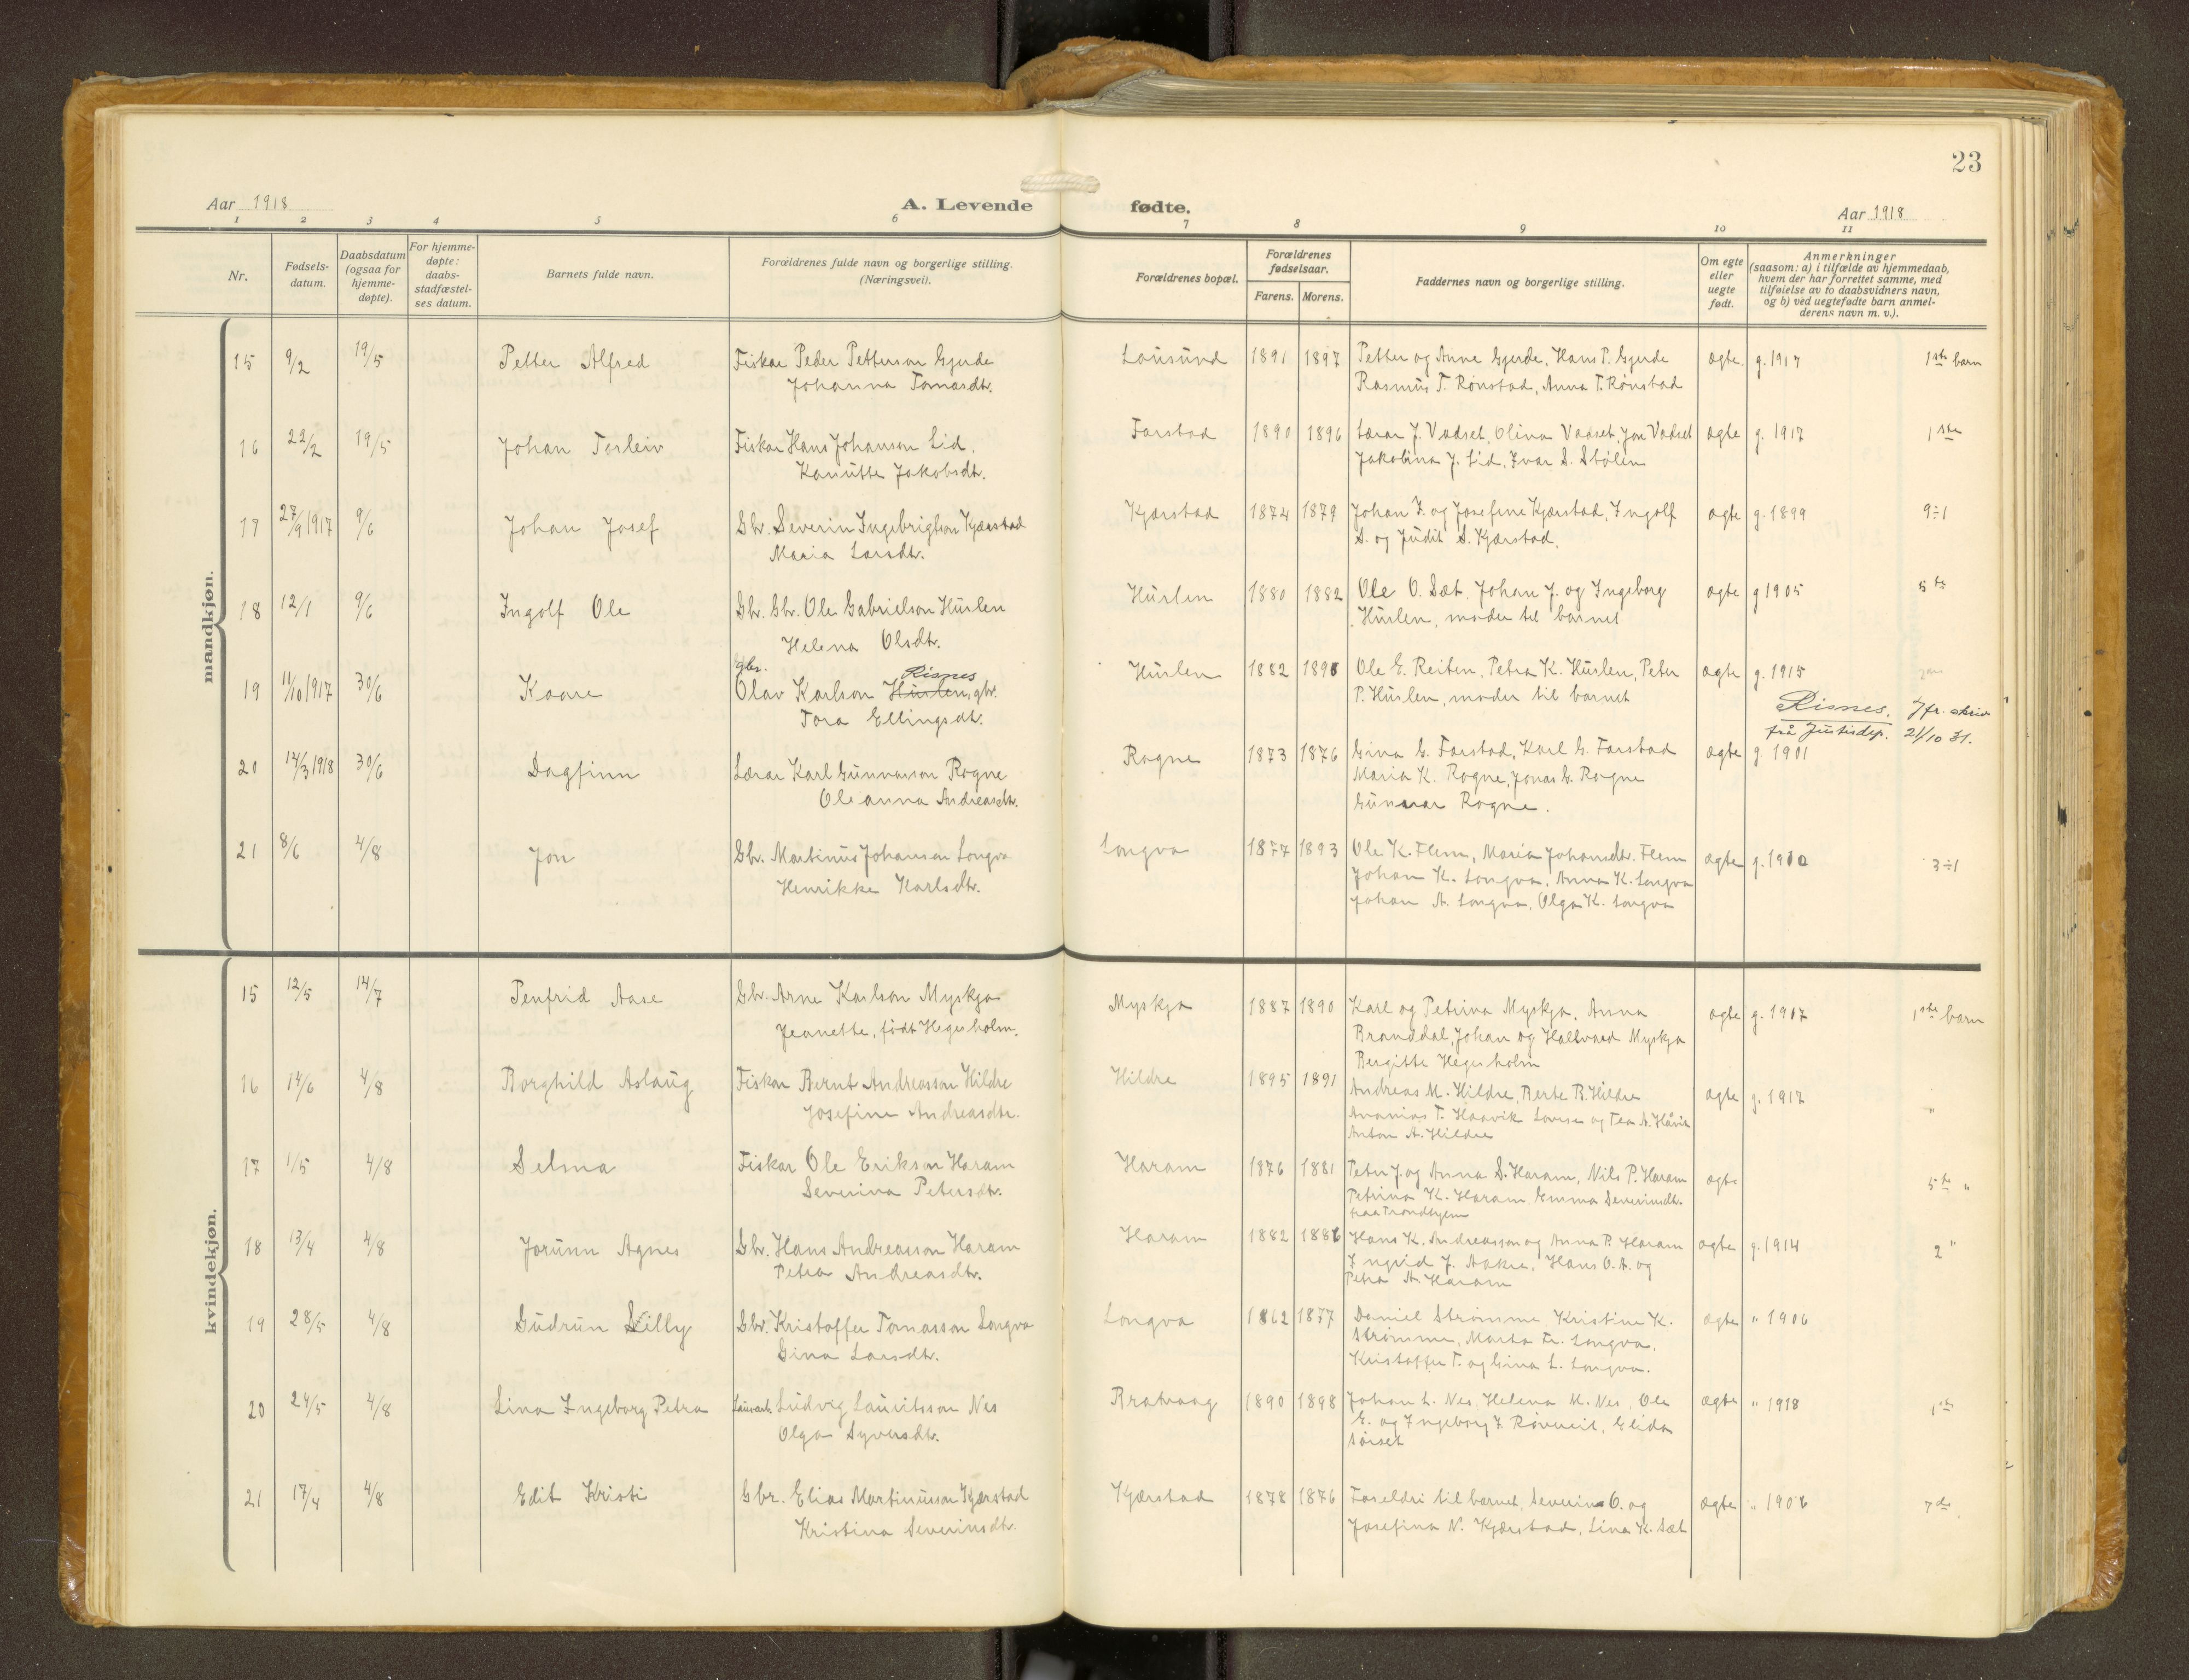 23
Aar 1918
A. Levende fødte.
Aar 1918
1 2 3 4 5 6 7 8 9 10 11
Nr.
Fødsels-
datum.
Daabsdatum
(ogsaa for
hjemme-
døpte).
For hjemme-
døpte:
daabs-
stadfæstel-
ses datum.
Barnets fulde navn.
Forældrenes fulde navn og borgerlige stilling.
(Næringsvei).
Forældrenes bopæl.
Forældrenes
fødselsaar.
Farens. Morens.
Faddernes navn og borgerlige stilling.
Om egte
eller
uegte
født.
Anmerkninger
(saasom: a) i tilfælde av hjemmedaab,
hvem der har forrettet samme, med
tilføielse av to daabsvidners navn,
og b) ved uegtefødte barn anmel-
derens navn m. v.).
mandkjøn.
15 9/2 19/5 Petter Alfred Fiskar Peder Petterson Gjerde Lausund 1891 1897 Petter og Anne Gjerde, Hans P. Gjerde ægte g. 1917 1ste barn
Johanna Tomasdtr. Rasmus T. Rønstad, Anna T. Rønstad
16 22/2 19/5 Johan Torleiv Fiskar Hans Johanson Lid. Farstad 1890 1896 Lærar J. Vadset, Olina Vadset, Jon Vadset ægte g. 1917 1ste
Kanutte Jakobsdtr. Jakobina J. Lid, Ivar S. Stølen
17 27/9 1917 9/6 Johan Josef Gbr. Severin Ingebrigtson Kjærstad Kjærstad 1874 1879 Johan I. og Josefine Kjærstad, Ingolf ægte g. 1899 9÷1
Maria Larsdtr. S. og Judit S. Kjærstad.
18 12/1 9/6 Ingolf Ole Gbr. Gbr. Ole Gabrielson Huslen Huslen 1880 1882 Ole O. Sæt, Johan J. og Ingeborg ægte g 1905 5te
Helena Olsdtr. Huslen, moder til barnet
19 11/10 1917 30/6 Kaare gbr. Olav Karlson Huslen, gbr. Risnes Huslen 1882 1891 Ole E. Reiten, Petra K. Huslen, Peter ægte g. 1915
Tora Ellingsdtr. P. Huslen, moder til barnet
Risnes. Jfr. skriv
frå Justisdep. 21/10 31.
20 14/3 1918 30/6 Dagfinn Lærar Karl Gunnarson Rogne Rogne 1873 1876 Gina G. Farstad, Karl G. Farstad ægte g. 1901
Oleanna Andreasdtr. Maria K. Rogne, Jonas G. Rogne
Gunnar Rogne.
21 8/6 4/8 Jon Gbr. Martinus Johansen Longva Longva 1877 1893 Ole K. Flem, Maria Johansdtr. Flem ægte g. 1910 3÷1
Henrikke Karlsdtr. Johan K. Longva, Anna K. Longva
Johan A. Longva, Olga K. Longva
kvindekjøn.
15 12/5 14/7 Penfrid Aase Gbr. Arne Karlson Myskja Myskja 1887 1890 Karl og Petrina Myskja, Anna ægte g. 1917 1ste barn
Jeanette, født Hegerholm. Branddal, Johan og Hallvard Myskja
Bergitte Hegerholm
16 14/6 4/8 Borghild Aslaug Fiskar Bernt Andreasson Hildre Hildre 1895 1891 Andreas M. Hildre, Berte B. Hildre ægte g. 1917 "
Josefine Andreasdtr. Ananias T. Haavik Lovise og Tea A. Håvik
Anton A. Hildre
17 1/5 4/8 Selma Fiskar Ole Erikson Haram Haram 1876 1881 Peter J. og Anna S. Haram, Nils P. Haram ægte 5te "
Severina Petersdtr. Petrina K. Haram Emma Severinsdtr.
fraa Trondhjem
18 13/4 4/8 Jorunn Agnes Gbr. Hans Andreasson Haram Haram 1882 1886 Hans K. Andreasson og Anna P. Haram ægte g. 1914 2 "
Petra Andreasdtr. Ingvid J. Aakre, Hans O. A. og
Petra A. Haram
19 28/5 4/8 Gudrun Lilly Gbr. Kristoffer Tomasson Longva Longva 1862 1877 Daniel Strømme Kristine K. ægte " 1906
Gina Larsdtr. Strømme, Marta Fr. Longva.
Kristoffer T. og Gina L. Longva.
20 24/5 4/8 Lina Ingeborg Petra Ludvig Lauritsson Nes Brattvaag 1890 1898 Johan L. Nes, Helena M. Nes, Ole ægte " 1918 1ste
Olga Syversdtr. E. og Ingeborg I. Røvreit, Elida
Sørset
21 17/4 4/8 Edit Kristi Gbr. Elias Martinusson Kjærstad Kjærstad 1878 1876 Foreldri til barnet, Severin O. og ægte " 1906 7de
Kristina Severinsdtr. Josefina N. Kjærstad, Lina K. Sæt